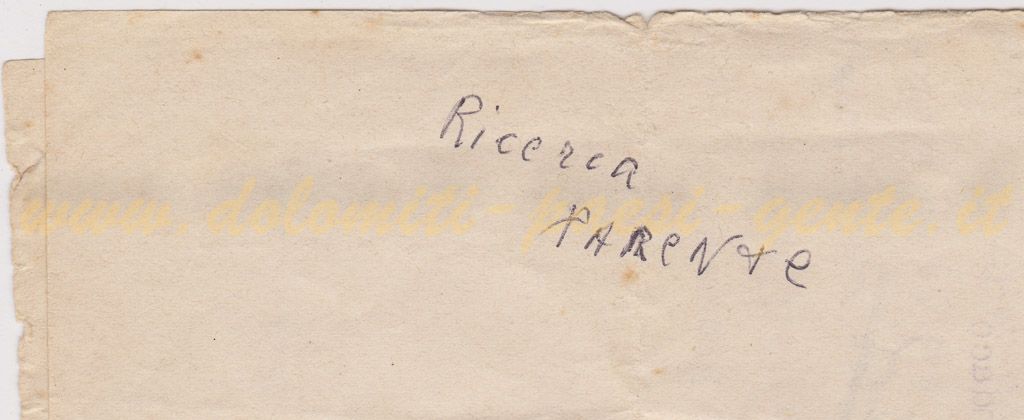 Ricerca
www.dolomiti-paesi-gente.it
PARENTE